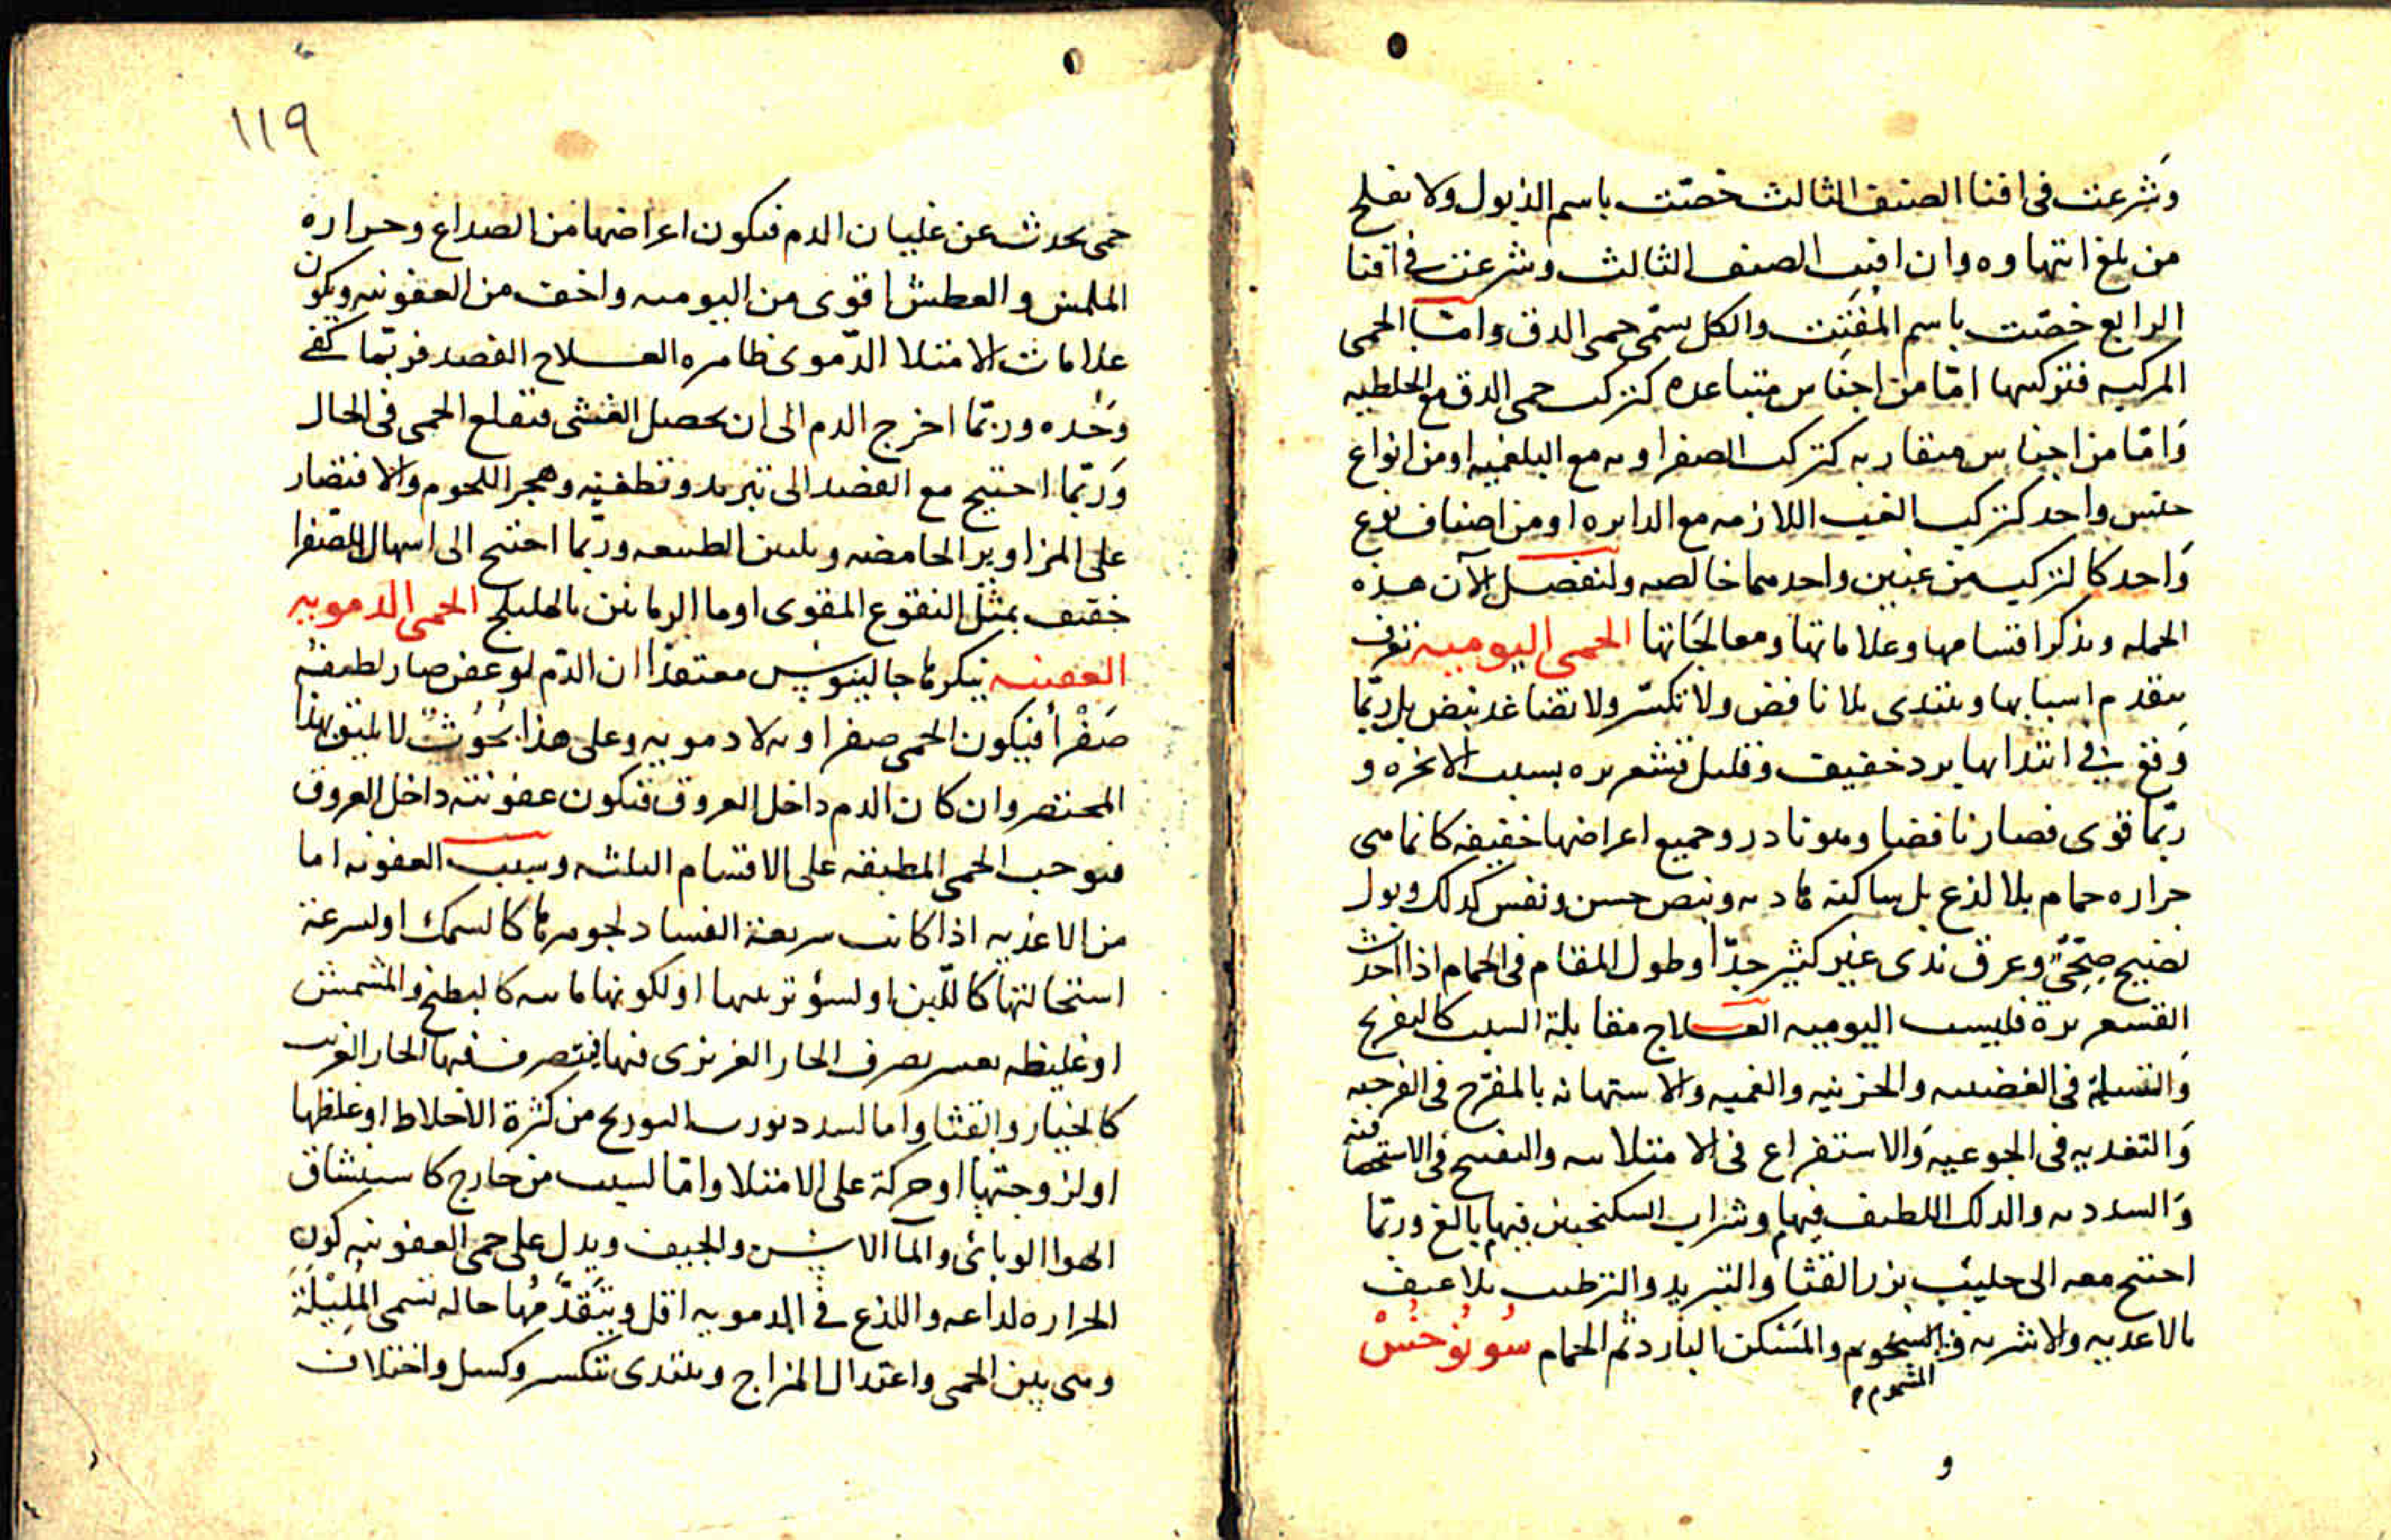 وشرعت في افنا الصنف الثالث خصّت باسم الذبول ولا يفلح
من بلغ انتهاوه وان افنت الصنف الثالث وشرعت في افنا
الرابع خصّت باسم المفتت والكل يسمّى حمى الدق وامّا الحمى
المركبه فتركبها امّا من اجناس متباعده كتركب حمى الدق مع الخلطيه
وامّا من اجناس متقاربه كتركب الصفراويه مع البلغميه او من انواع
جنس واحد كتركيب الغب اللازمه مع الدايره او من اصناف نوع
واحد كالتركيب من غبين واحدهما خالصه ولنفصل الآن هذه
الجمله ونذكر اقسامها وعلاماتها ومعالجاتها الحمى اليوميه تعرف
بتقدم اسبابها وتبتدى بلا نافض ولا تكسّر ولا تضاغد نبض بل ربّما
وقع في ابتدائها برد خفيف وقليل قشعريره بسبب الابخره و
ربّما قوى فصار نافضا وهو نادر وجميع اعراضها خفيفه كانما هى
حراره حمام بلا لذع بل ساكنه هاديه ونبض حسن ونفس كذلك وبول
نضيج صِحّىّ وعرق ندى غير كثير جدّا وطول المقام فى الحمام اذا احدث
القشعريرة فليست اليوميه العـــلاج مقابلة السبب كالتفريح
والتسلية فى الغضبيه والحزنيه والغميه والاستهانه بالمفرّح فى الفرحيه
والتغديه فى الجوعيه والاستفراع فى الامتلائيه والتفتيح فى الاستحصافيه
والسدديه والدلك اللطيف فيهما وشراب السكنجبين فيهما بالغ وربّما
احتيج معه الى حليب بزر القثا والتبريد والترطيب بلا عنف
بالاغديه والاشربه والمشموم والمسكن البارد ثم الحمام سُونُوخُسْ
و
١١٩
حمى تحدث عن غليان الدم فتكون اعراضها من الصداع وحراره
الملمس والعطش اقوى من اليوميه واخف من العفونيه ويكون
علامات الامتلا الدّموى ظاهره العـــلاج الفصد فربّما كفى
وحْده وربّما اخرج الدم الى ان يحصل الغشى فتقلع الحمى فى الحال
وربّما احتيج مع الفصد الى تبريد وتطفيه وهجر اللحوم والاقتصار
على المزاوير الحامضه وتليين الطبيعه وربّما احتيج الى اسهال للصّفرا
خفيف بمثل النقوع المقوى او ما الرمانين بالهليلج الحمى الدمويه
العفنيه ينكرها جالينوس معتقدا ان الدّم لو عفن صار لطيفه
صَفْراً فيكون الحمى صفراويه لا دمويه وعلى هذا بُحُوثٌ لا يليق بهذا
المختصر وان كان الدم داخل العروق فتكون عفونته داخل العروق
فتوجب الحمى المطبقه على الاقسام الثلثه وسبب العفونه اما
من الاغذيه اذا كانت سريعة الفساد لجوهرها كالسمك او لسرعة
استحالتها كاللّبن او لسؤ ترتيبها او لكونها مائيه كالبطيخ والمشمش
او غليظه يعسر تصرف الحار الغريزى فيها فيتصرف فيها الحار الغريب
كالخيار والقثا واما لسدد تورث التوريح من كثرة الاخلاط او غلظها
او لزوجتها او حركة على الامتلا وامّا لسبب من خارج كاستنشاق
الهوا الوبائى والمآ الآسن والجيف ويدل على حمى العفونيه كون
الحراره لداعه واللذع فى الدمويه اقل ويَتَقَدَّمُها حاله تسمى المَلِيْلَةَ
وهى بين الحمى واعتدال المزاج وتبتدى بتكسر وكسل واختلاف